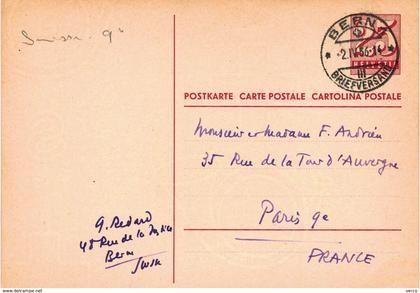 Suisse - 9
BERN
2.IV.56-14
III
BRIEFVERSAND
HELVETIA
POSTKARTE CARTE POSTALE CARTOLINA POSTALE
Monsieur et Madame F. Andrieu
35 Rue de la Tour d'Auvergne
Paris 9e
FRANCE
G. Redard
48 Rue de la
Bern